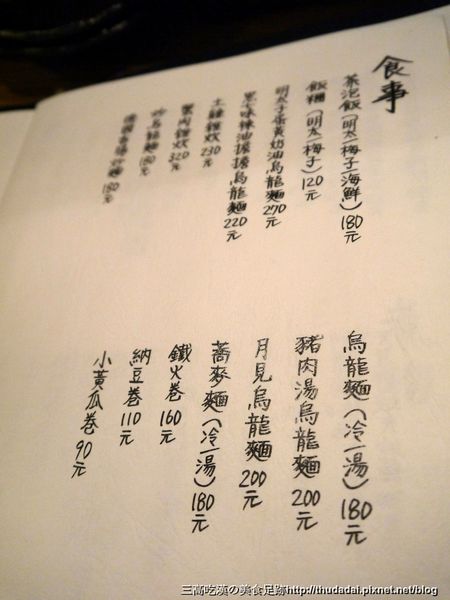 食事
茶泡飯(明太一梅子一海鮮)180元
飯糰(明太一梅子)120元
明太子蛋黃奶油烏龍麵270元
黑味辣油擔擔烏龍麵220元
土雞雜炊230元
蟹肉雜炊320元
炒烏龍麵180元
德國香腸炒麵180元
烏龍麵(冷一湯)180元
豬肉湯烏龍麵200元
月見烏龍麵200元
蕎麥麵(冷一湯)180元
鐵火卷160元
納豆卷110元
小黃瓜卷90元
三高吃漢の美食足跡http://thudadai.pixnet.net/blog